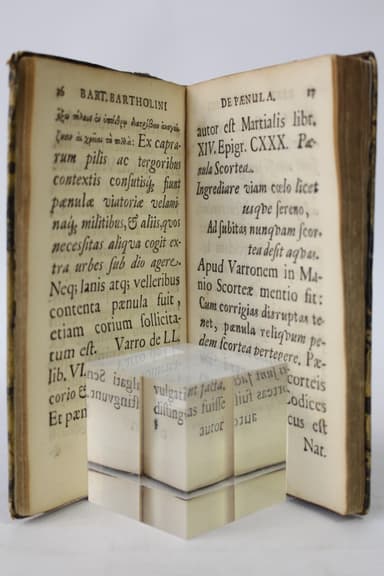 16 BART. BARTHOLINI
Ex capra-
rum pilis ac tergoribus
contextis consutisq́; fiunt
pænulæ viatoriæ velami-
naq́; militibus, & aliis, qvos
necessitas aliqva cogit ex-
tra urbes sub dio agere.
Neq; lanis atq; velleribus
contenta pænula fuit,
etiam corium sollicita-
tum est. Varro de LL.
lib. VI.
corio
Et pæn
DE PÆNULA. 17
autor est Martialis libr.
XIV. Epigr. CXXX. Pæ-
nula Scortea.
Ingrediare viam cœlo licet
usqve sereno,
Ad subitas nunqvam scor-
tea desit aqvas.
Apud Varronem in Ma-
nio Scorteæ mentio fit:
Cum corrigias disruptas te-
net, pænula reliqvum pe-
dem scortea pertegere. Pæ-
corteis
codices
cus est
Nat.